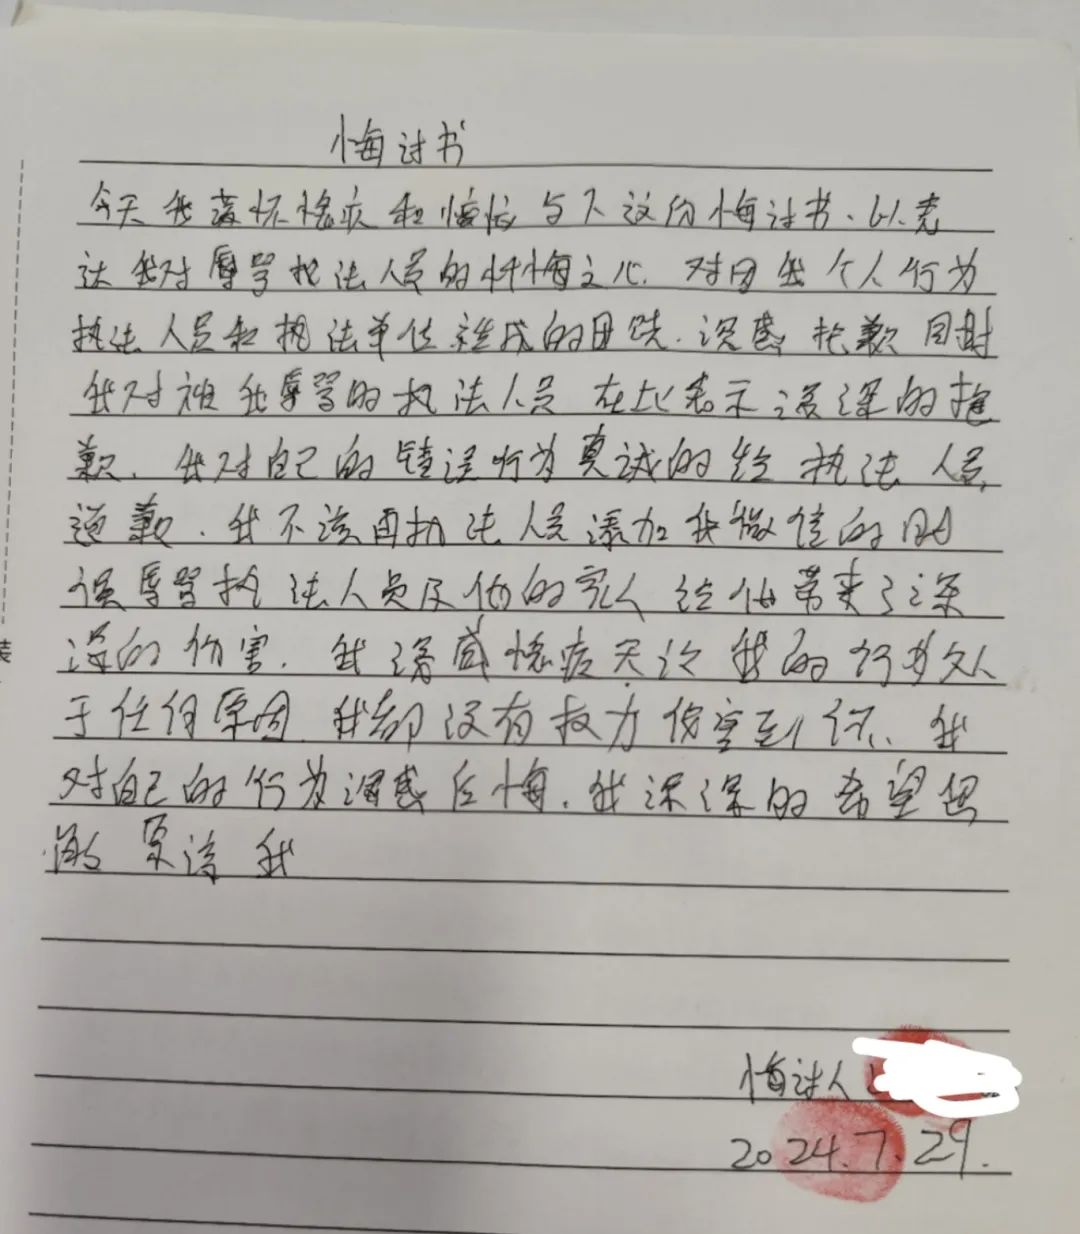 悔过书
今天我满怀愧疚和懊悔写下这份悔过书、以表
达我对辱骂执法人员的忏悔之心. 对因我个人行为
执法人员和执法单位造成的困扰. 深感抱歉 同时
我对被我辱骂的执法人员 在此表示深深的抱
歉. 我对自己的错误行为真诚的给执法人员
道歉. 我不该再执法人员添加我微信的时
候辱骂执法人员及他的家人 给他带来了深
深的伤害. 我深感愧疚无论我的行为处
于任何原因 我都没有权力伤害到你. 我
对自己的行为深感后悔. 我深深的希望您
原谅我
悔过人
2024.7.29.
装